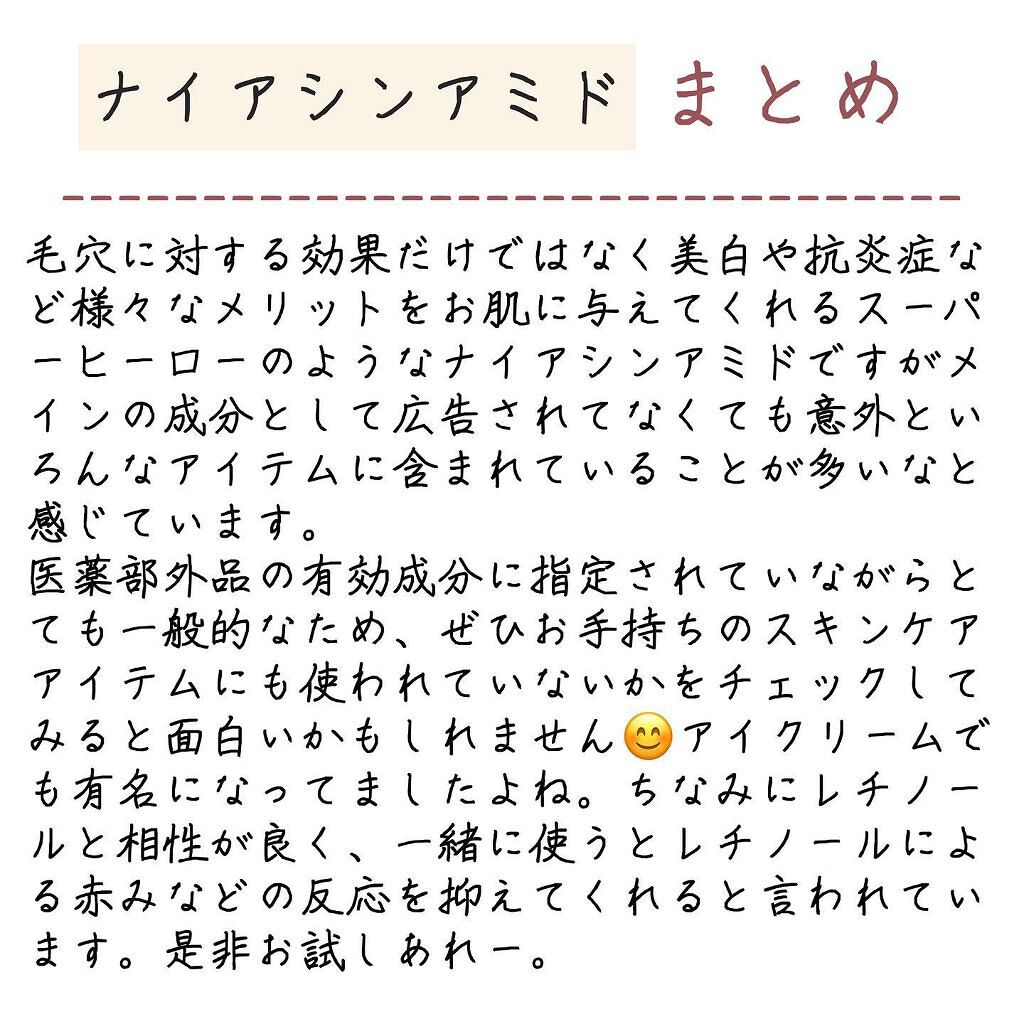 ナイアシンアミド まとめ
毛穴に対する効果だけではなく美白や抗炎症な
ど様々なメリットをお肌に与えてくれるスーパ
ーヒーローのようなナイアシンアミドですがメ
インの成分として広告されてなくても意外とい
ろんなアイテムに含まれていることが多いなと
感じています。
医薬部外品の有効成分に指定されていながらと
ても一般的なため、ぜひお手持ちのスキンケア
アイテムにも使われていないかをチェックして
みると面白いかもしれません😊アイクリームで
も有名になってましたよね。ちなみにレチノー
ルと相性が良く、一緒に使うとレチノールによ
る赤みなどの反応を抑えてくれると言われてい
ます。是非お試しあれー。